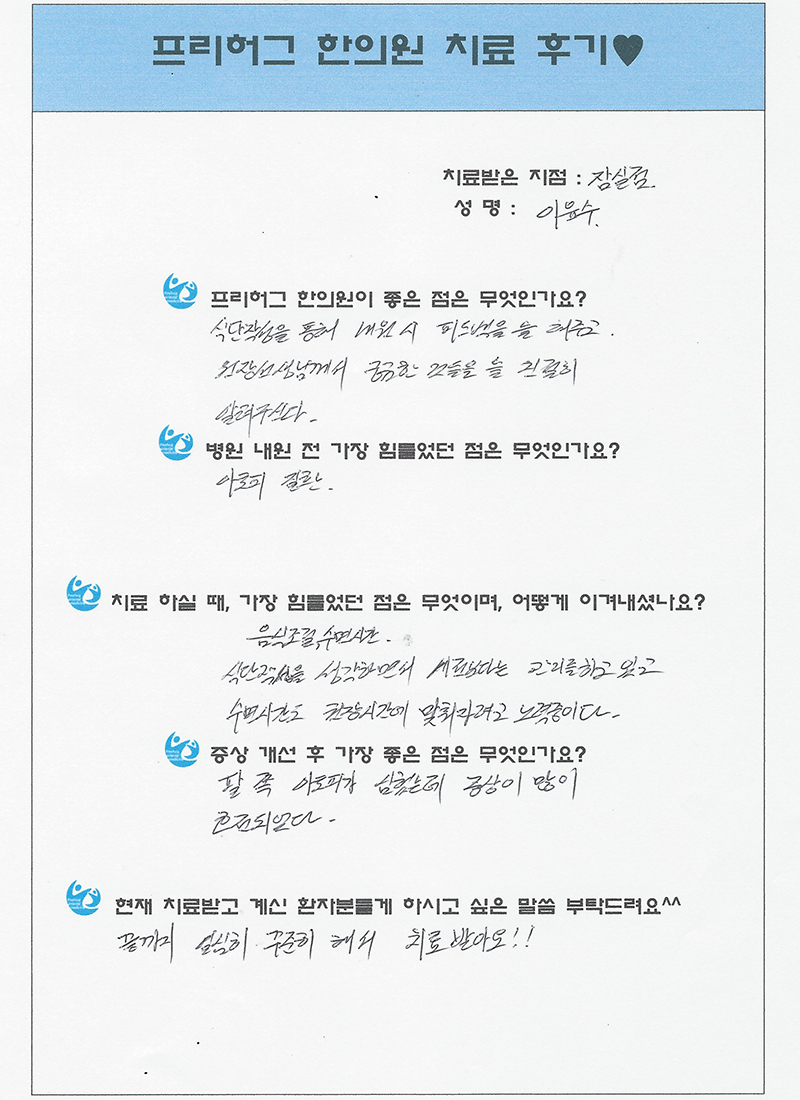 프리허그 한의원 치료 후기♥
치료받은 지점 : 잠실점.
성 명 : 이윤수.
프리허그 한의원이 좋은 점은 무엇인가요?
식단작성을 통해 내원 시 피드백을 늘 해주고.
원장선생님께서 궁금한 것들을 늘 친절히
알려주신다.
병원 내원 전 가장 힘들었던 점은 무엇인가요?
아토피 질환.
치료 하실 때, 가장 힘들었던 점은 무엇이며, 어떻게 이겨내셨나요?
음식조절, 수면시간.
식단작성을 생각하면서 예전보다는 관리를하고 있고
수면시간도 권장시간에 맞춰자려고 노력중이다.
증상 개선 후 가장 좋은 점은 무엇인가요?
팔 쪽 아토피가 심했는데 증상이 많이
호전되었다.
현재 치료받고 계신 환자분들게 하시고 싶은 말씀 부탁드려요^^
끝까지 열심히 꾸준히 해서 치료 받아요!!